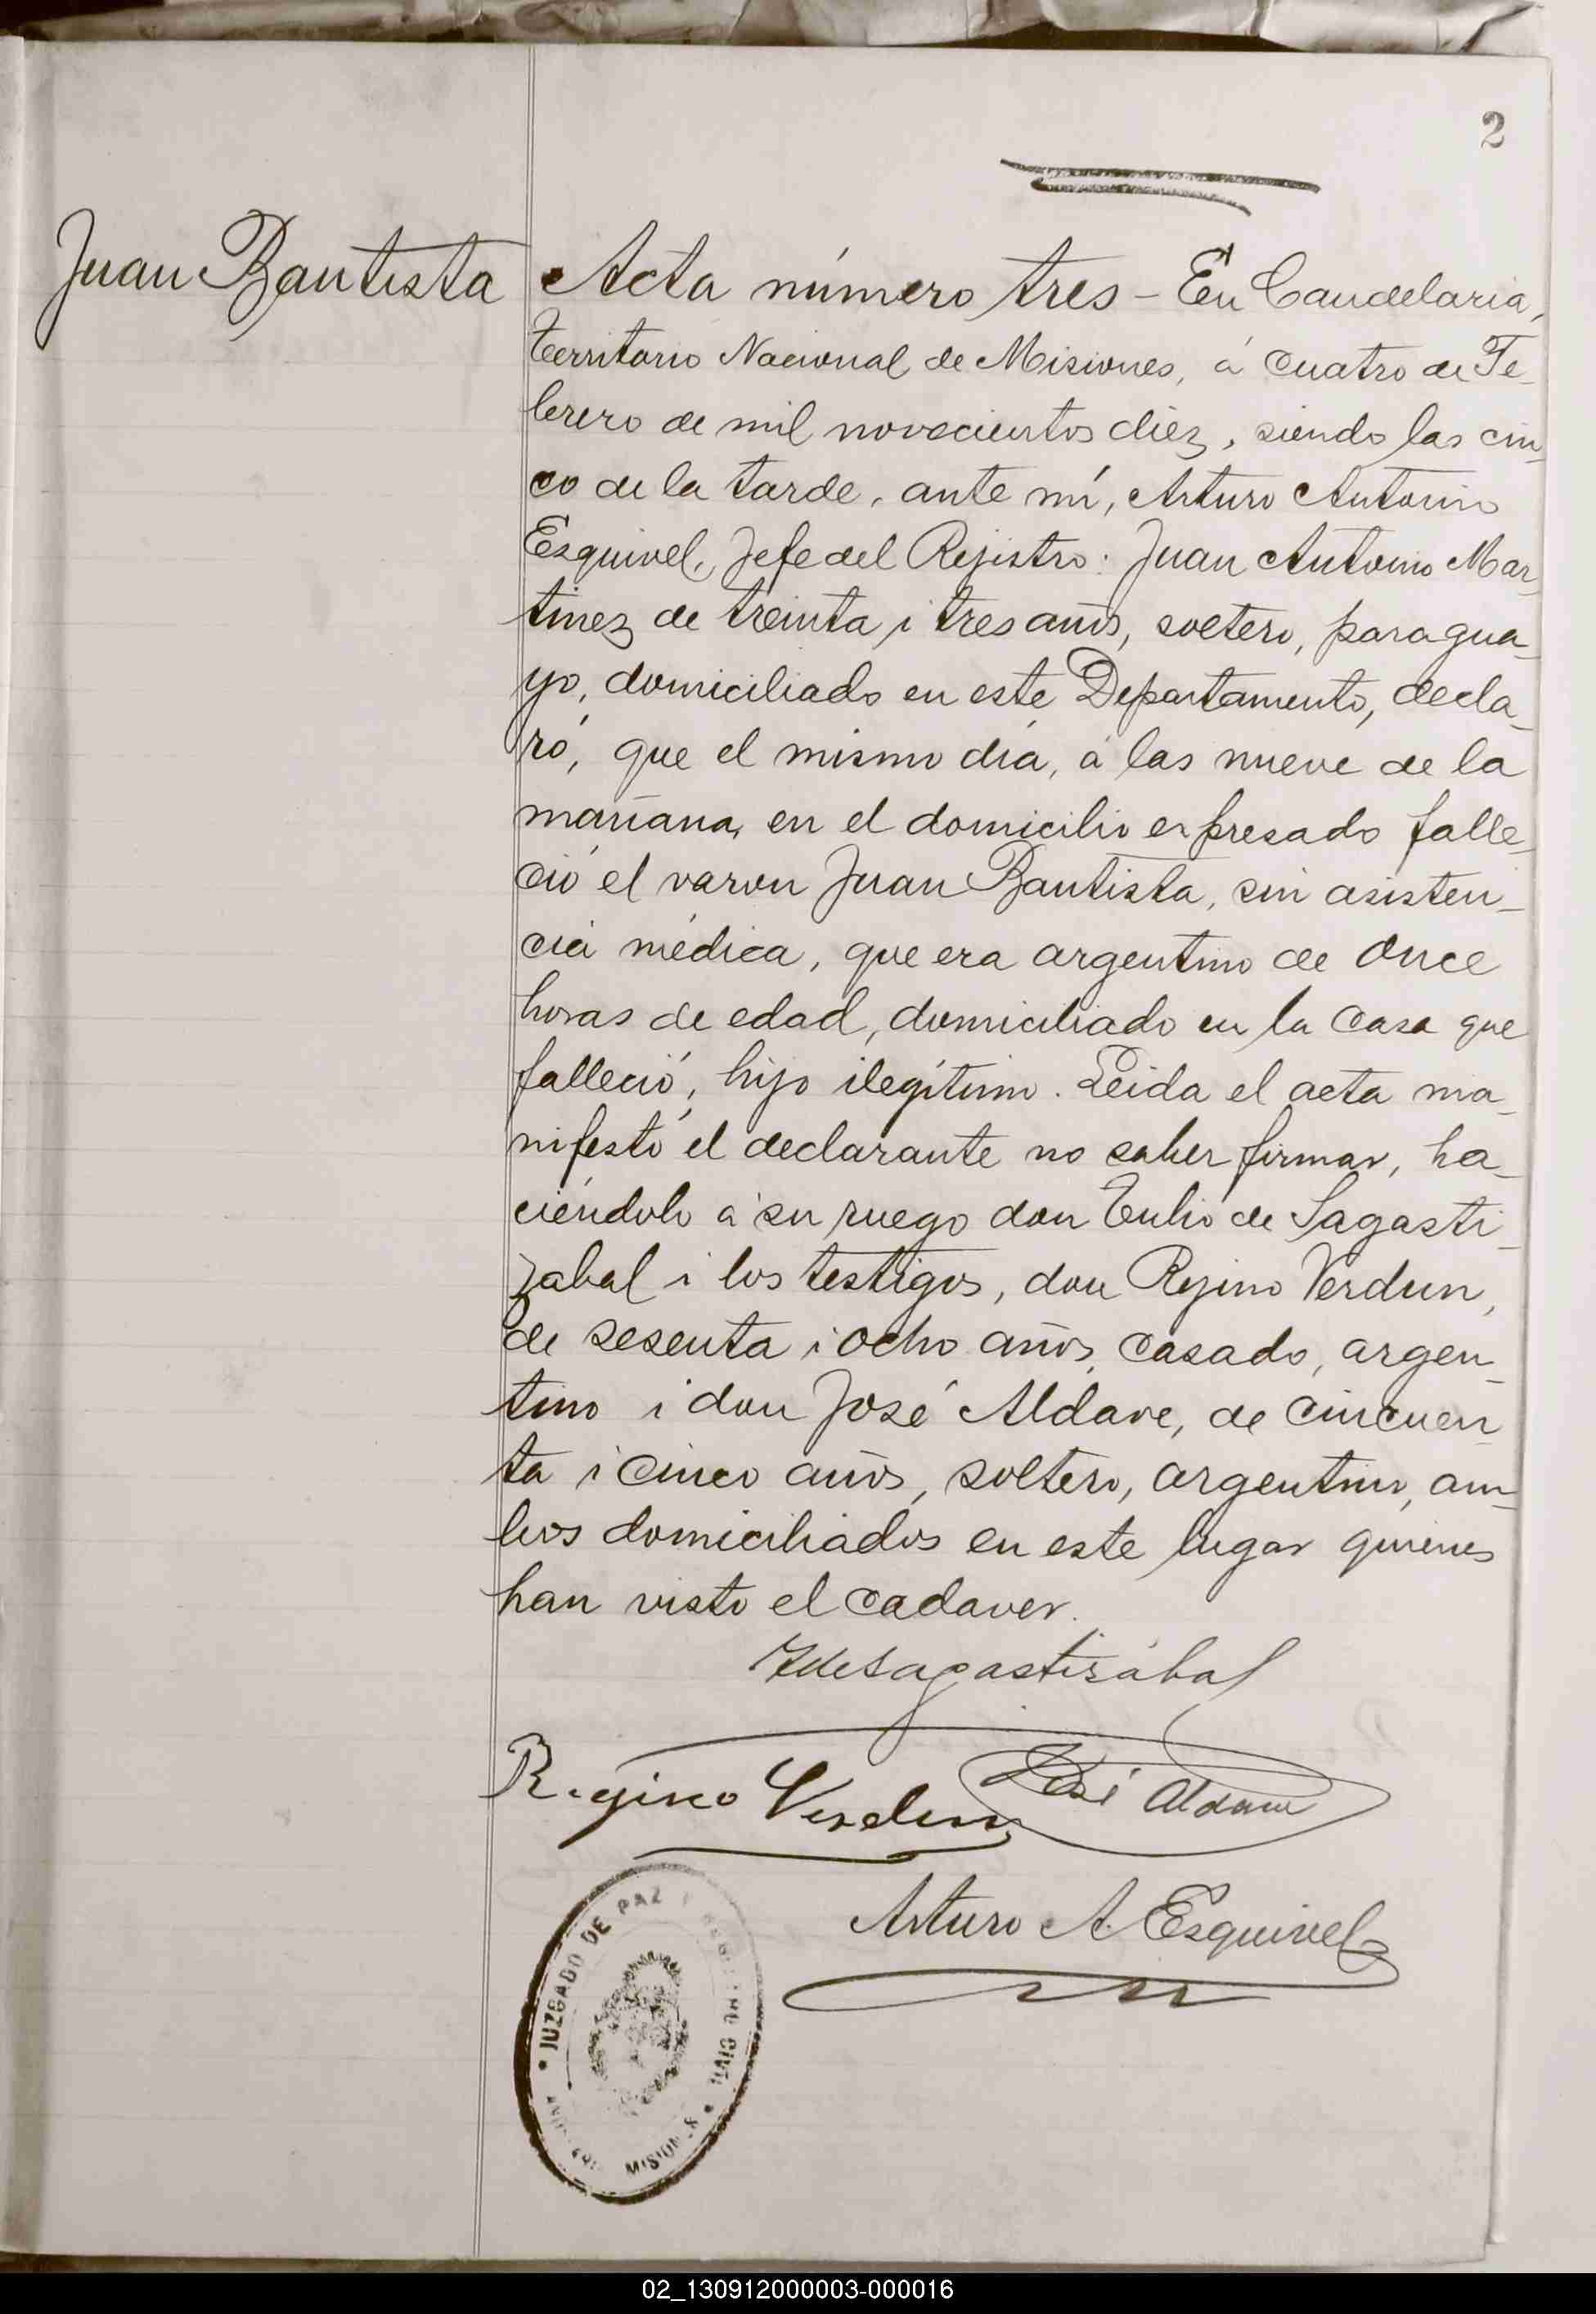 2
Juan Bautista
Acta número tres - En Candelaria,
territorio Nacional de Misiones, á cuatro de Fe-
brero de mil novecientos diez, siendo las cin-
co de la tarde, ante mí, Arturo Antonio
Esquivel, Jefe del Rejistro: Juan Antonio Mar-
tinez de treinta i tres años, soltero, paragua-
yo, domiciliado en este Departamento, decla-
ró, que el mismo día, á las nueve de la
mañana, en el domicilio expresado falle-
ció el varon Juan Bautista, sin asisten-
cia médica, que era argentino de once
horas de edad, domiciliado en la casa que
falleció, hijo ilegítimo. Leida el acta ma-
nifestó el declarante no saber firmar, ha-
ciéndolo á su ruego don Tulio de Sagasti-
zabal i los testigos, don Rejino Verdun,
de sesenta i ocho años, casado, argen-
tino i don José Aldave, de cincuen-
ta i cinco años, soltero, argentino, am-
bos domiciliados en este lugar quienes
han visto el cadaver.
TdeSagastizábal
Regino Verdun
José Aldave
Arturo A. Esquivel
JUZGADO DE PAZ Y REGISTRO CIVIL
MISIONES
02_130912000003-000016